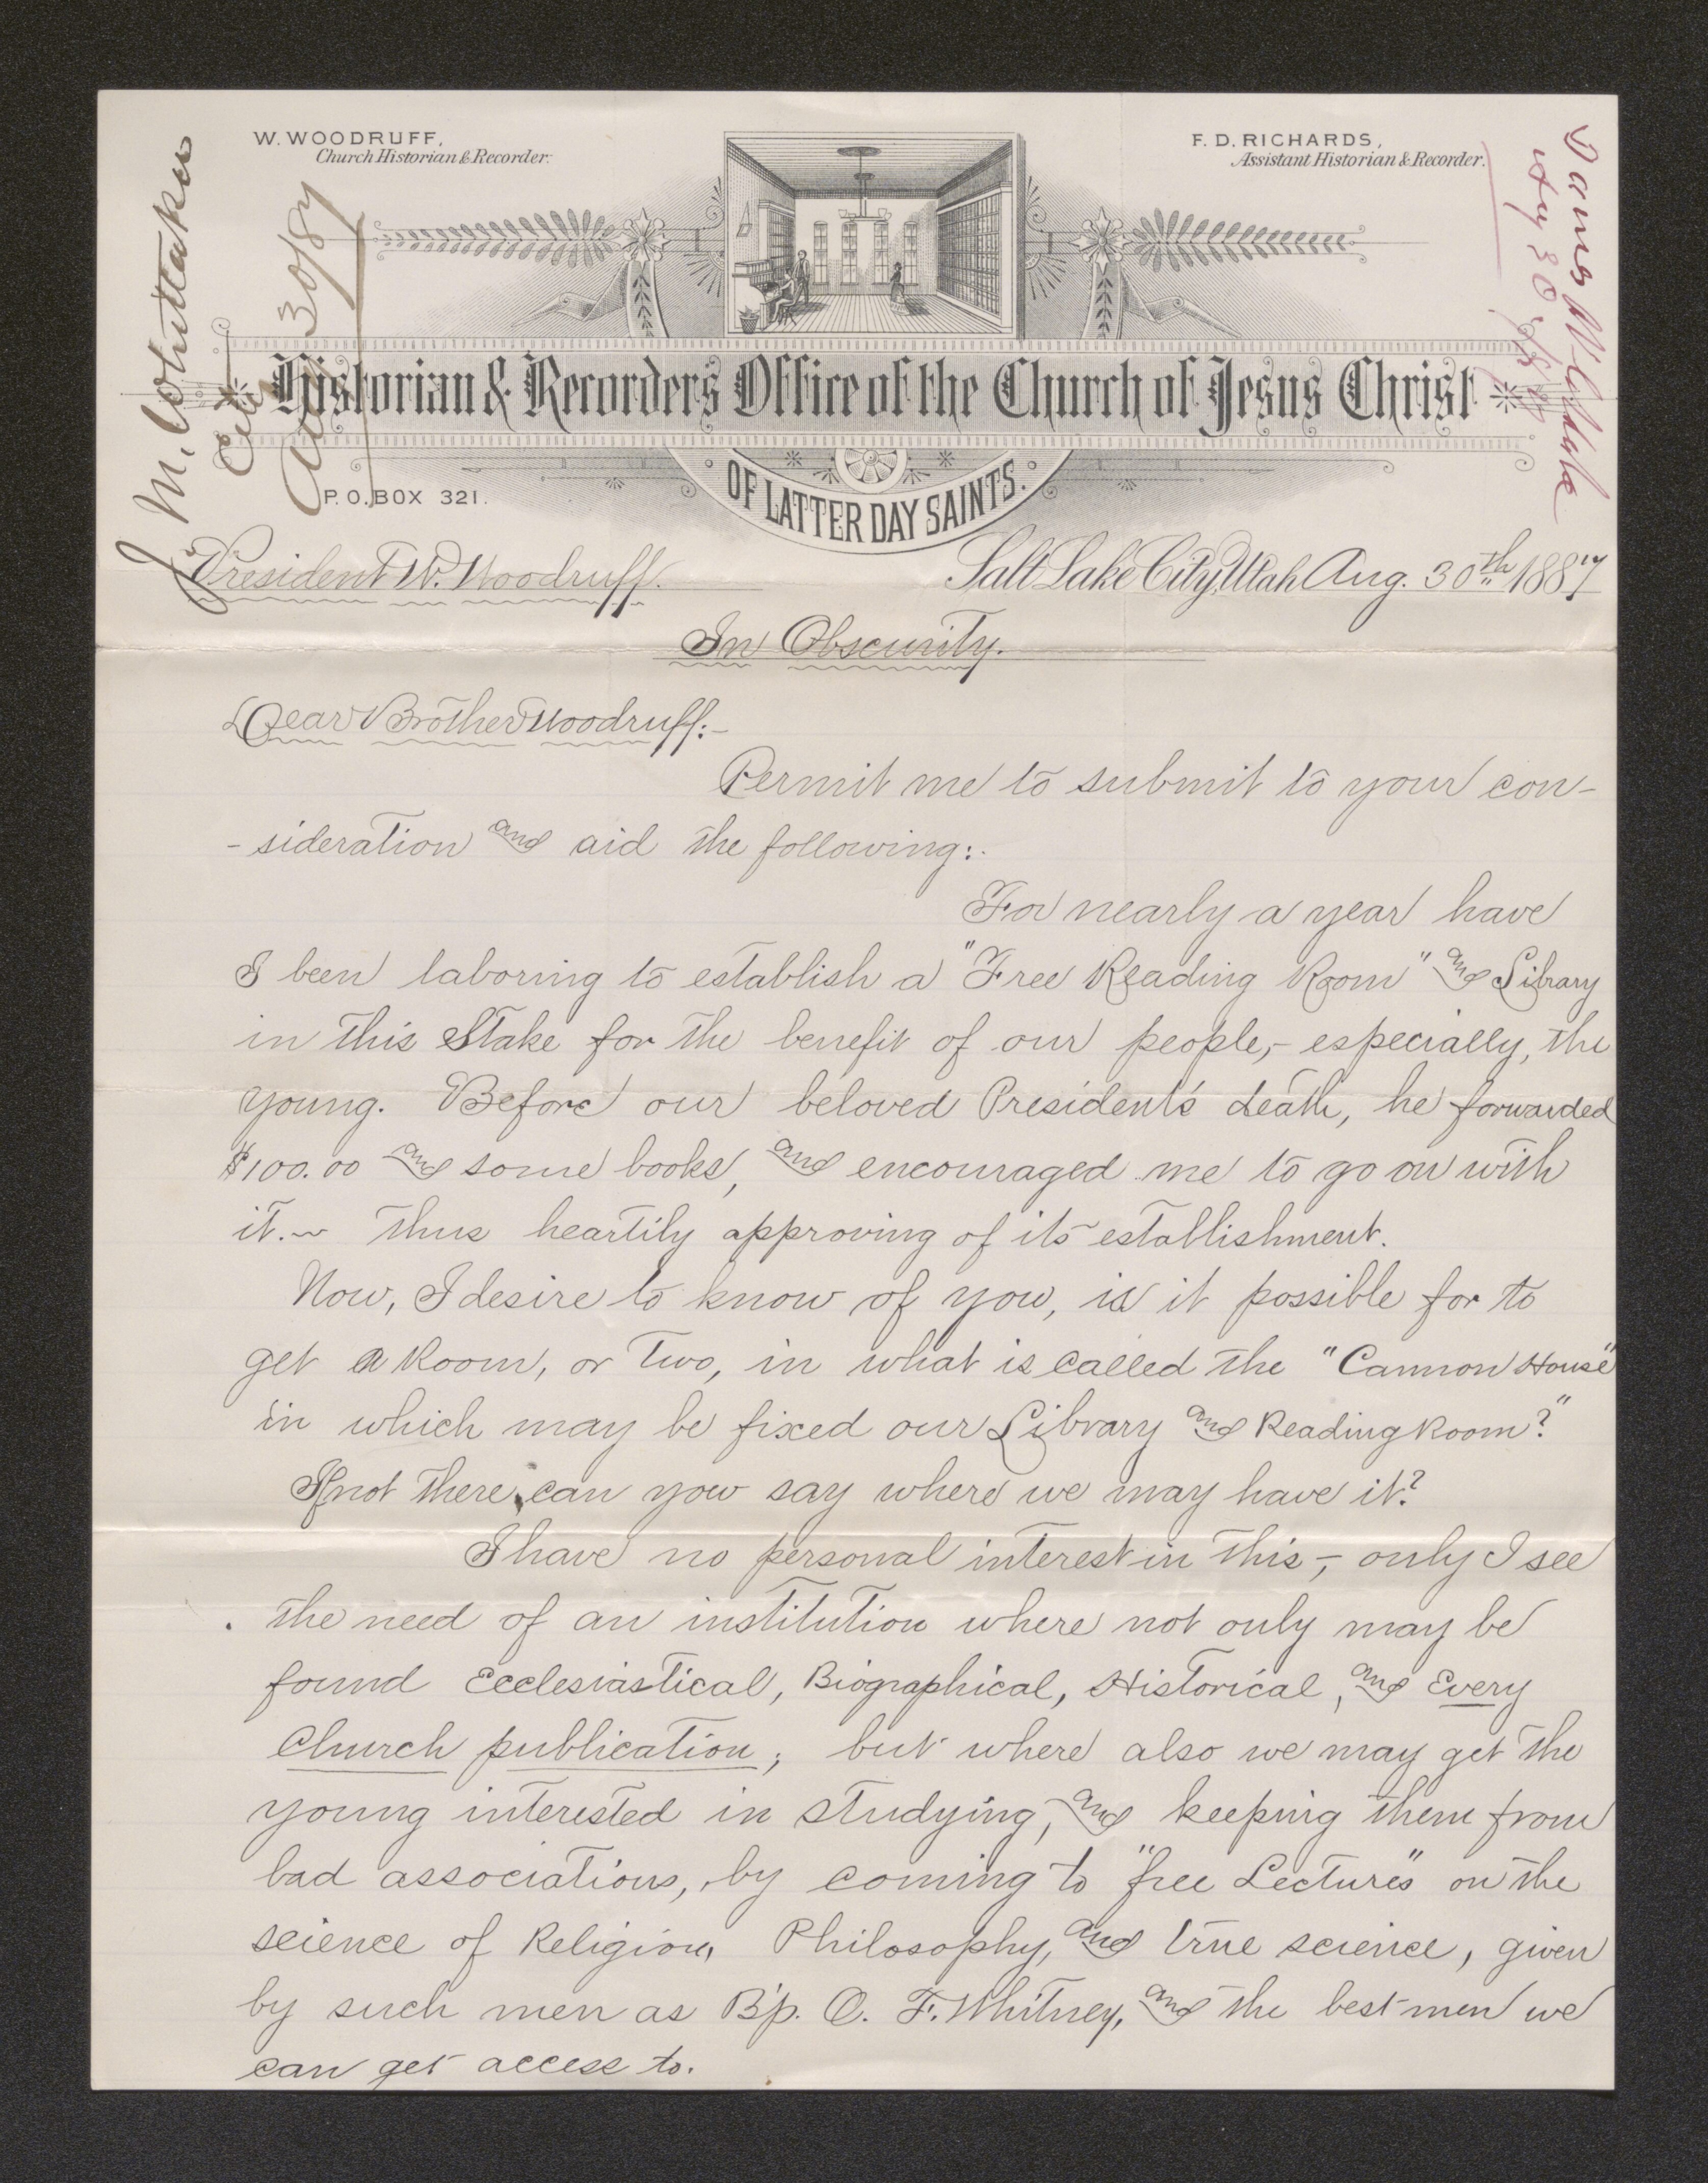 W. WOODRUFF,
Church Historian & Recorder.
F. D. RICHARDS,
Assistant Historian & Recorder.
J M. Whittaker
City
Aug 30/87
Aug 30 '87
Historian & Recorders Office of the Church of Jesus Christ
OF LATTER DAY SAINTS.
P. O. BOX 321.
President W. Woodruff.
Salt Lake City, Utah Aug. 30th 1887
In Obscurity.
Dear Brother Woodruff:-
Permit me to submit to your con-
-sideration and aid the following:-
For nearly a year have
I been laboring to establish a "Free Reading Room" and Library
in this Stake for the benefit of our people,- especially, the
young. Before our beloved President's death, he forwarded
$100.00 and some books, and encouraged me to go on with
it.~ thus heartily approving of its establishment.
Now, I desire to know of you, is it possible for to
get a Room, or Two, in what is called the "Cannon House"
in which may be fixed our Library and Reading Room?"
If not there, can you say where we may have it?
I have no personal interest in this,- only I see
the need of an institution where not only may be
found Ecclesiastical, Biographical, Historical, and Every
Church publication; but where also we may get the
young interested in studying, and keeping them from
bad associations, by coming to "free Lectures" on the
science of Religion, Philosophy, and true science, given
by such men as B'p. O. F. Whitney, and the best men we
can get access to.